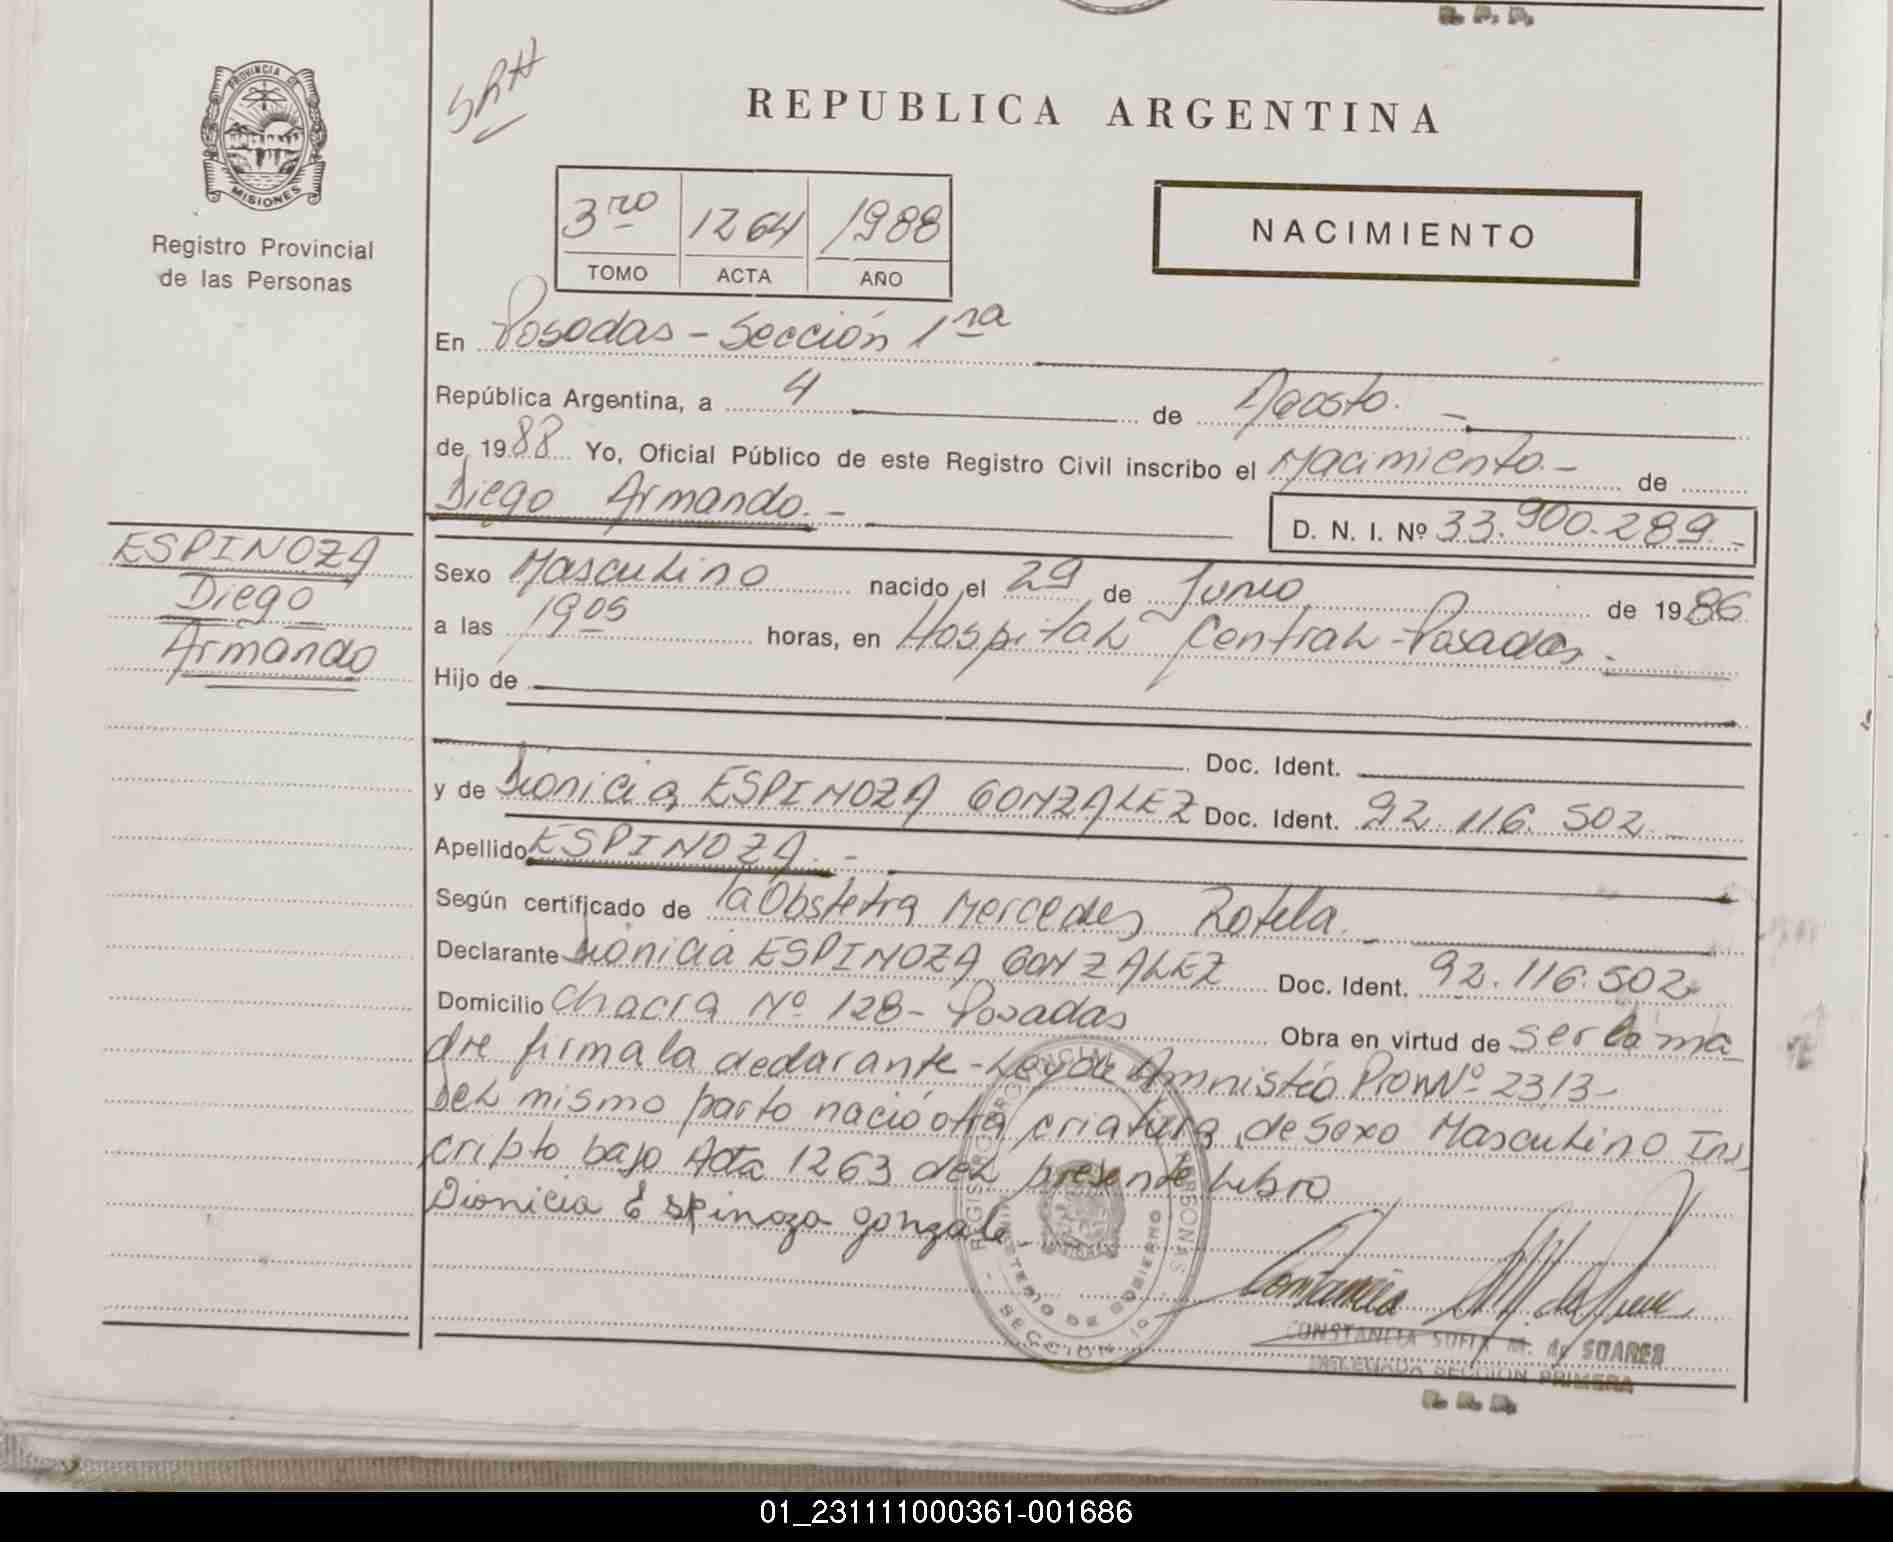 R. P. P.
SRH
PROVINCIA DE
MISIONES
Registro Provincial
de las Personas
REPUBLICA ARGENTINA
3ro 1264 1988
TOMO ACTA AÑO
NACIMIENTO
En Posadas - Sección 1ra
República Argentina, a 4 de Agosto. -
de 1988 Yo, Oficial Público de este Registro Civil inscribo el Nacimiento. - de
Diego Armando. -
D. N. I. Nº 33.900.289. -
ESPINOZA
Diego
Armando
Sexo Masculino nacido el 29 de Junio de 1986
a las 1905 horas, en Hospital Central - Posadas. -
Hijo de
Doc. Ident.
y de Dionicia ESPINOZA GONZALEZ Doc. Ident. 92.116.502. -
Apellido ESPINOZA. -
Según certificado de la Obstetra Mercedes Rotela. -
Declarante Dionicia ESPINOZA GONZALEZ Doc. Ident. 92.116.502
Domicilio Chacra Nº 128 - Posadas Obra en virtud de ser la ma
dre firma la declarante - Ley de Amnistía Prov Nº 2313 -
Del mismo parto nació otra criatura de sexo Masculino Ins
cripto bajo Acta 1263 del presente Libro
Dionicia Espinoza gonzale
REGISTRO PROVINCIAL DE LAS PERSONAS
MINISTERIO DE GOBIERNO
SECCION 1a
CONSTANCIA SOFIA M. de SOARES
DELEGADA SECCION PRIMERA
R. P. P.
01_231111000361-001686